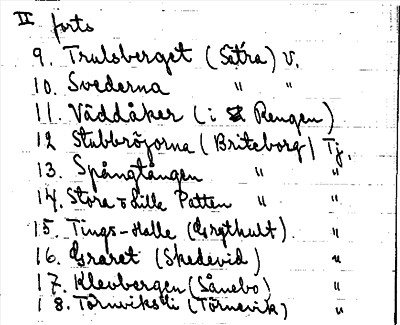 II forts
9. Trulsberget (Sätra) V.
10. Svederna " "
11. Väddåker (i Rengen)
12 Stubbröjorna (Briteborg) Tj.
13. Spångtången " "
14. Stora o Lilla Patten " "
15. Tings-Halle (Brythult) "
16. Braret (Skedevid) "
17. Klevbergen (Sånebo) "
18. Törnviksli (Törnevik) "